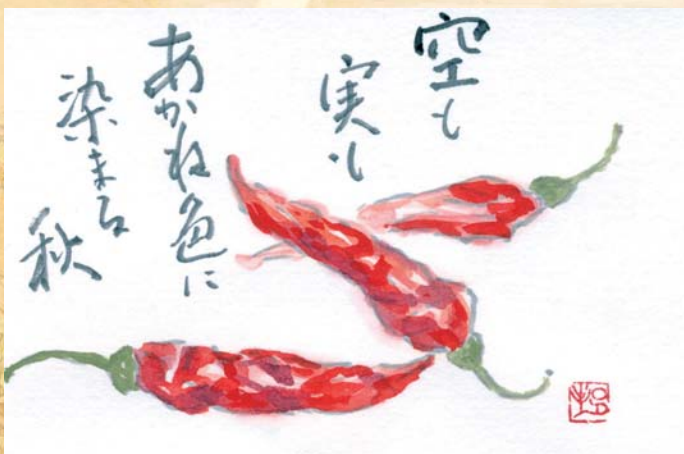 空も
実も
あかね色に
染まる
秋